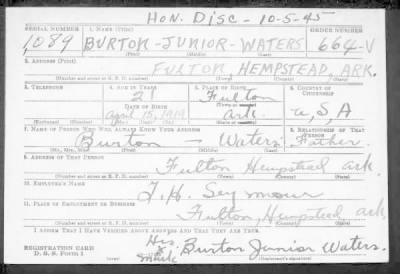 HON. DISC - 10-5-45
SERIAL NUMBER 1. NAME (Print) ORDER NUMBER
1,089 BURTON - JUNIOR - WATERS 664-V
(First) (Middle) (Last)
2. ADDRESS (Print)
FULTON HEMPSTEAD, ARK.
(Number and street or R. F. D. number) (Town) (County) (State)
3. TELEPHONE 4. AGE IN YEARS 5. PLACE OF BIRTH 6. COUNTRY OF CITIZENSHIP
21 Fulton
DATE OF BIRTH (Town or county)
April 15, 1919 Ark. U, S, A
(Exchange) (Number) (Mo.) (Day) (Yr.) (State or country)
7. NAME OF PERSON WHO WILL ALWAYS KNOW YOUR ADDRESS 8. RELATIONSHIP OF THAT PERSON
Burton — Waters Father.
(Mr., Mrs., Miss) (First) (Middle) (Last)
9. ADDRESS OF THAT PERSON
Fulton Hempstead Ark.
(Number and street or R. F. D. number) (Town) (County) (State)
10. EMPLOYER'S NAME
Seymour
11. PLACE OF EMPLOYMENT OR BUSINESS
Fulton, Hempstead Ark.
(Number and street or R. F. D. number) (Town) (County) (State)
I AFFIRM THAT I HAVE VERIFIED ABOVE ANSWERS AND THAT THEY ARE TRUE.
REGISTRATION CARD
D. S. S. Form 1
His Burton Junior Waters.
mark (Registrant's signature)